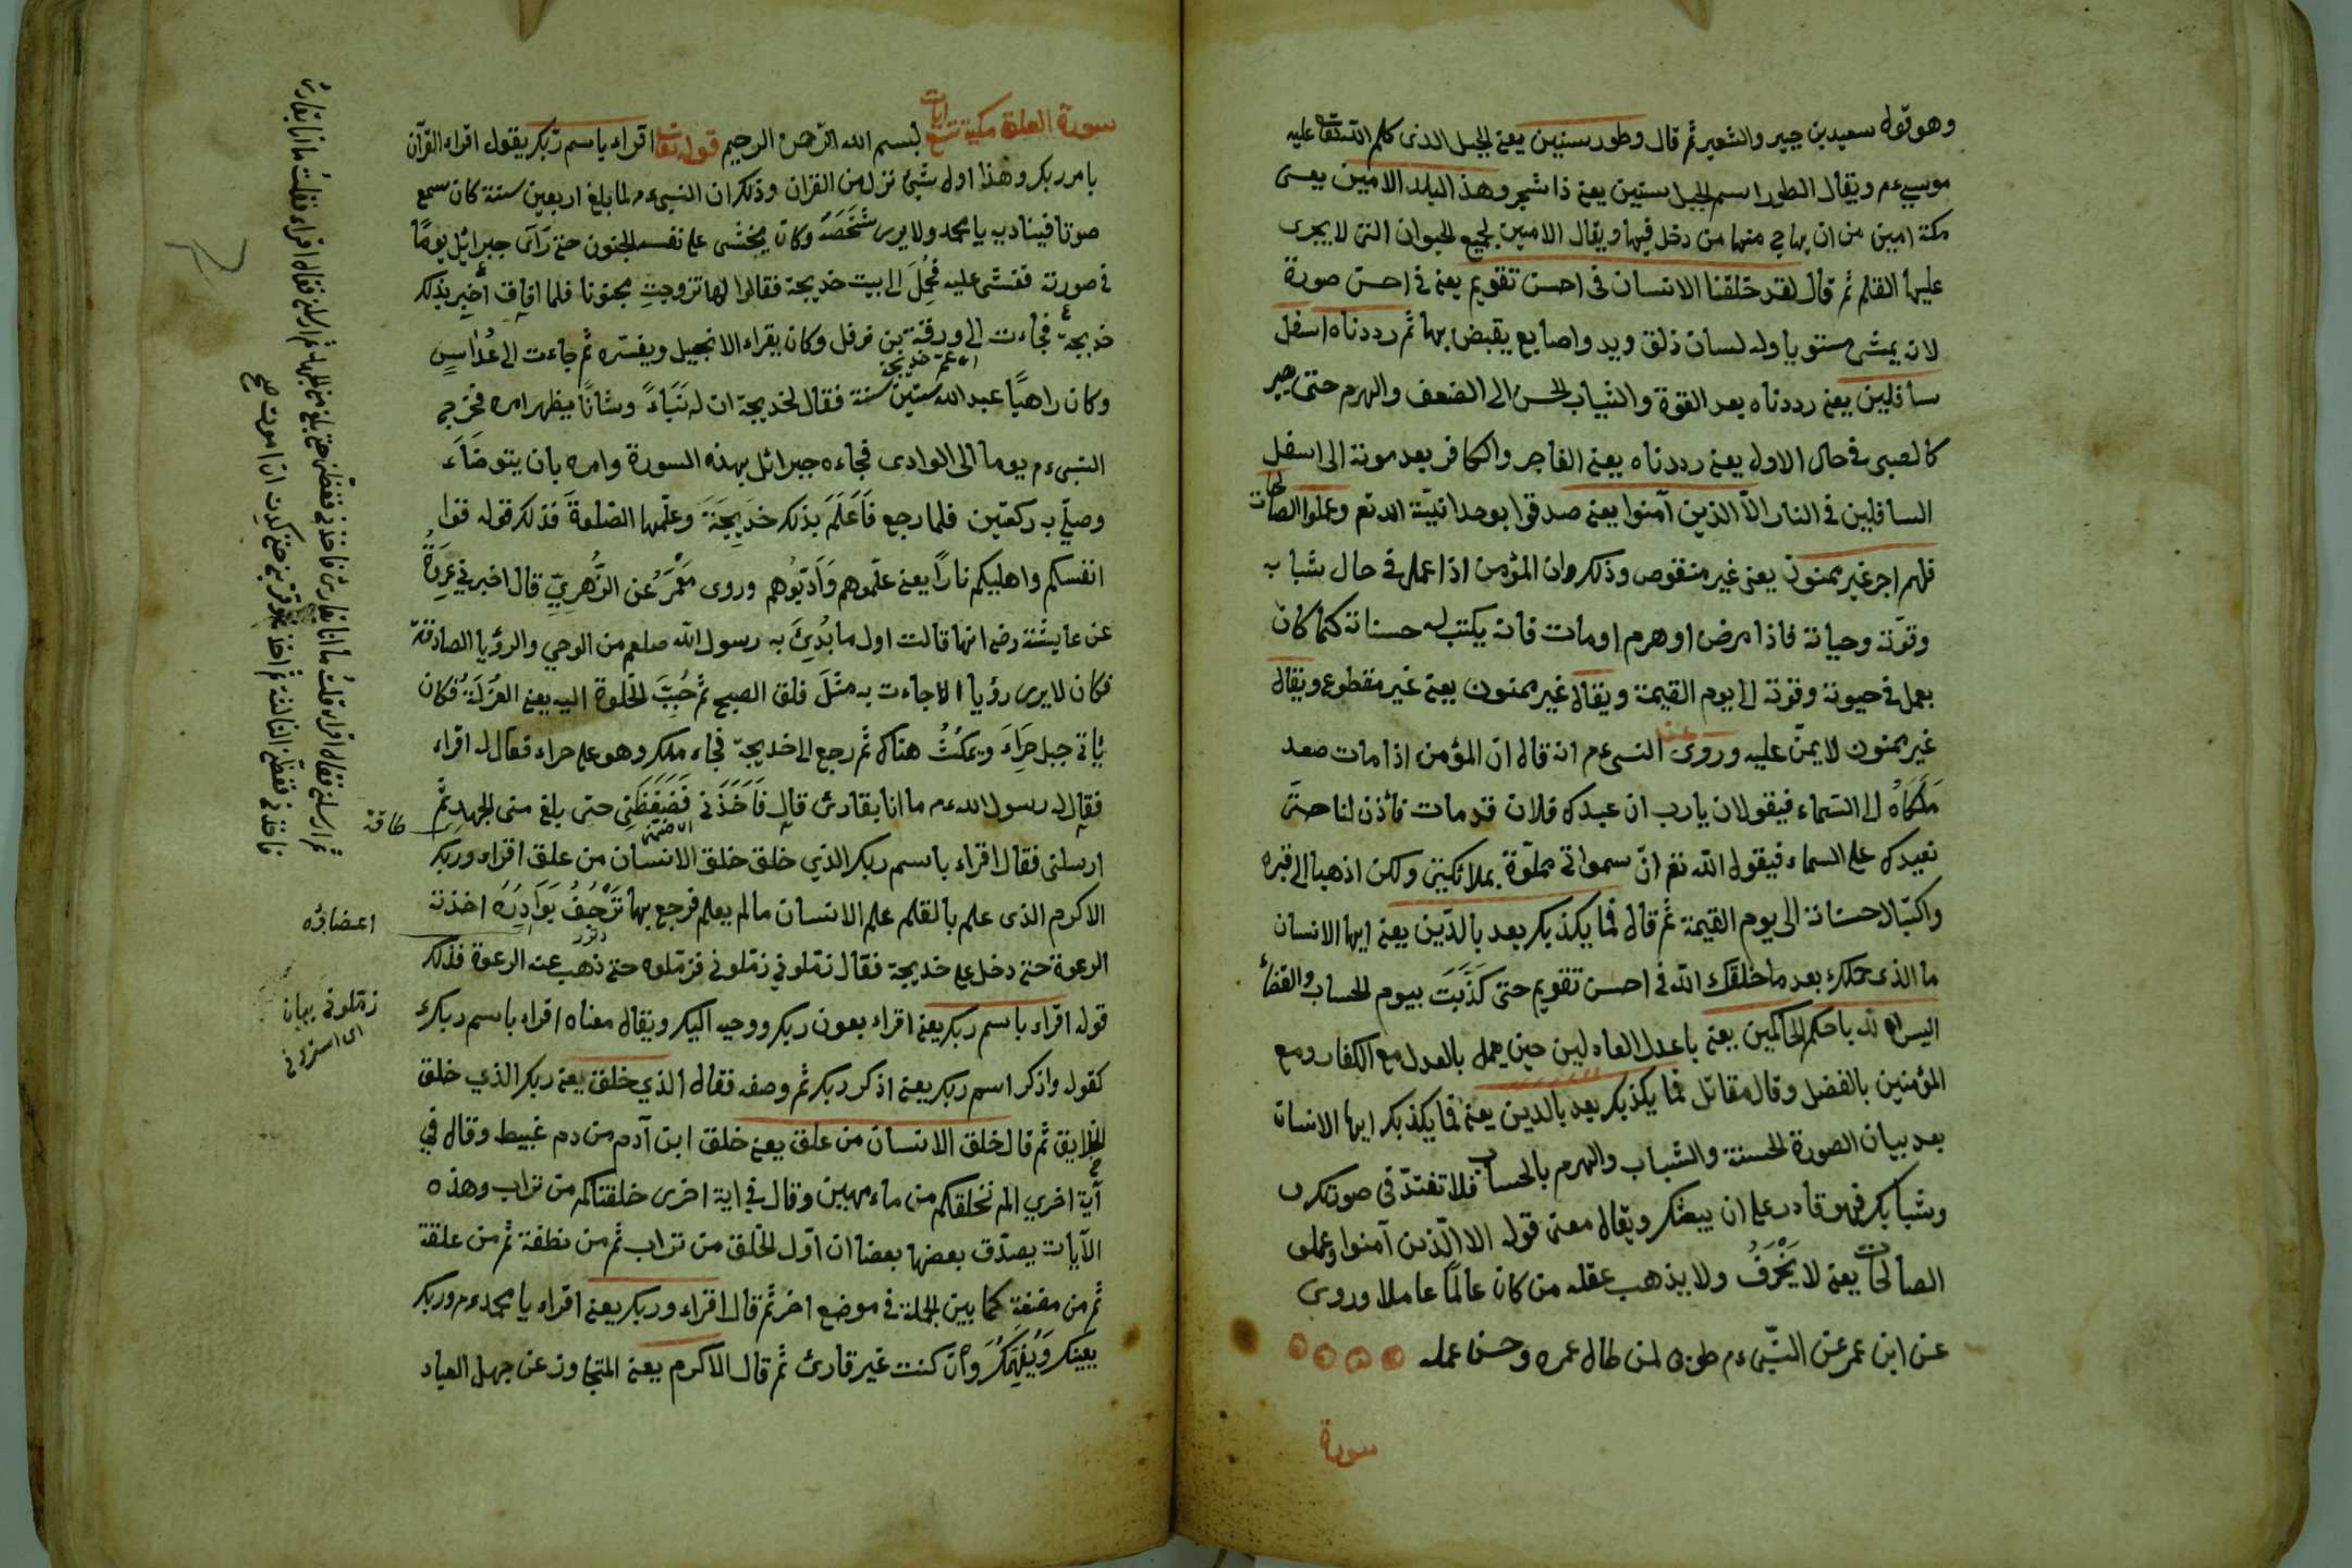 وهو قول سعيد بن جبير والشعير ثم قال وطور سينين يعني الجبل الذى كلم الله تعالى عليه
موسى ءم ويقال الطور اسم الجبل سينين يعني ذا شجر وهذا البلد الامين يعنى
مكة امين من ان يهاج منها من دخل فيها ويقال الامين لجميع الحيوان التى لا يجرى
عليها القلم ثم قال لقد خلقنا الانسان فى احسن تقويم يعني فى احسن صورة
لانه يمشى مستويا وله لسان ذلق ويد واصابع يقبض بها ثم رددناه اسفل
سافلين يعني رددناه بعد القوة والشباب الحسن الى الضعف والهرم حتى يصير
كالصبى فى حال الاول يعني رددناه يعني الفاجر والكافر بعد موته الى اسفل
السافلين فى النار الّا الذين آمنوا يعنى صدقوا بوحدانيّة الله تع وعملوا الصالحات
فلهم اجر غير ممنون يعنى غير منقوص وذلك وان المؤمن اذا عمل فى حال شبابه
وقوّته وحياته فاذا مرض او هرم او مات فانه يكتب له حسناته كما كان
يعمل فى حيوته وقوته الى يوم القيمة ويقال غير ممنون يعني غير مقطوع ويقال
غير ممنون لا يمنّ عليه وروى عن النبى ءم انه قال ان المؤمن اذا مات صعد
مَلَكَاهُ الى السّماء فيقولان يا رب ان عبدك فلان قد مات فأذن لنا حتى
نعبدك على السماء فيقول الله تع انّ سمواتى مملوّة بملائكتى ولكن اذهبا الى قبره
واكتبا لاحسناته الى يوم القيمة ثم قال فما يكذبك بعد بالدّين يعني ايها الانسان
ما الذى حملك بعد ما خلقك الله فى احسن تقويم حتى كَذَّبَت بيوم الحساب والقضاء
اليس الله باحكم الحاكمين يعني باعدل العادلين حين يعمل بالعدل مع الكفار ومع
المؤمنين بالفضل وقال مقاتل فما يكذبك بعد بالدين يعني فما يكذبك ايها الانسان
بعد بيان الصورة الحسنة والشباب والهرم بالحساب فلا تغترّ فى صورتك
وشبابك فهو قادر على ان يبعثك ويقال معنى قوله الا الّذين آمنوا وعملوا
الصالحات يعني لا يَخْرَفُ ولا يذهب عقله من كان عالمًا عاملا وروى
عن ابن عمر عن النبّى ءم طوبى لمن طال عمره وحسن عمله
سورة
سورة العلق مكية تسع ايات بسم الله الرّحمن الرحيم قوله تعالى اقراء باسم ربّك يقول اقراء القرآن
بامر ربك وهذا اول شئ نزل من القران وذلك ان النبى ءم لما بلغ اربعين سنة كان سمع
صوتا فيناديه يا محمد ولا يرى شَخْصَهُ وكان يخشى على نفسه الجنون حتى رَأى جبرائيل يومًا
فى صورته فغشى عليه فحُمِلَ الى بيت خديجة فقالوا لها تزوجتِ مجنونا فلما افاق أخبر بذلك
خديجة فجاءت الى ورقة بن نوفل وكان يقراء الانجيل ويفسّره ثم جاءت الى عُدَاسٍ
ابن عم خديجة
وكان راهبًا عبد الله ستين سنة فقال لخديجة ان له نَبَاءً وشانًا يظهر امره فخرج
النبى ءم يوما الى الوادى فجاءه جبرائل بهذه السورة وامره بان يتوضَاءَ
وصلّى به ركعتين فلما رجع فَاَعْلَمَ بذلك خَدِيجَةَ وعلّمها الصّلوةَ فذلك قوله قوا
انفسكم واهليكم نارًا يعنى علّموهم وَاَدّبُوهم وروى مَعْمَرُ عن الزُّهرِيِّ قال اخبرنى عروةُ
عن عايشة رض انها قالت اول ما بُدِئَ به رسول الله صلعم من الوحي والرؤيا الصادقة
فكان لا يرى رؤيا الا جاءت به مثلَ فلق الصبح ثم حُبِّبَ الخلوة اليه يعني العُزلَةُ فكان
يأتى جبل حِرَاءَ ويمكُثُ هناك ثم رجع الى خديجة فجاء ملك وهو على حراء فقال له اقراء
فقال له رسول الله ءم ما انا بقارئ قال فَاَخَذَنى فَضَغَطَنِى حتى بلغ منى الجهد ثمّ
طاقة
ارسلنى فقال اقراء باسم ربك الذي خلق خلق الانسان من علق اقراء وربك
الاكرم الذى علم بالقلم علم الانسان مالم يعلم فرجع بها تَرْجُفُ بَوَادِرُهُ اخذته
اعضاؤه
الرعوة حتى دخل على خديجة فقال زمّلونى زمّلونى فزمّلوه حتى ذهب عنه الرعوة فذلك
قوله اقراء باسم ربك يعني اقراء بعون ربك ووحيه اليك ويقال معناه اقراء باسم ربك
كقوله واذكر اسم ربك يعني اذكر ربك ثم وصفه فقال الذي خلق يعني ربك الذي خلق
الخلايق ثم قال خلق الانسان من علق يعني خلق ابن آدم من دم غبيط وقال في
آية اخري الم نخلقكم من ماء مهين وقال فى اية اخرى خلقناكم من تراب وهذه
الآيات يصدّق بعضها بعضا ان اوّل الخلق من تراب ثم من نطفة ثم من علقة
ثم من مضغة كما بين الجملة فى موضع اخر ثم قال اقراء وربك يعنى اقراء يا محمد ءم وربك
يعينك وَيُفَهِّمُكَ وأن كنت غير قارئ ثم قال الاكرم يعنى المتجاوز عن جهل العباد
زمّلونى
اى استرونى
ثم ارسلنى فقال اقراء قلتُ ما انا بقارئ فاخذنى فغطّنى حتى بلغ منى الجهد ثم ارسلنى فقال اقراء فقلتُ ما انا بقارئ
فاخذنى فغطّنى الثالثة